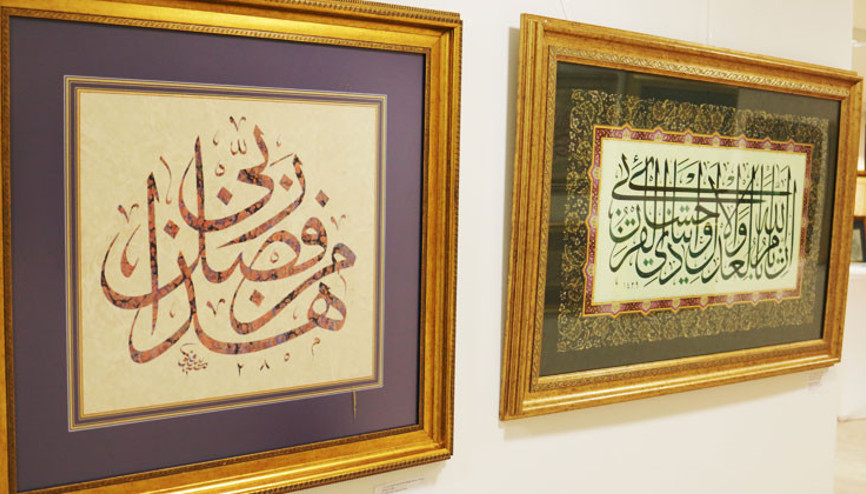 هذا من فضل ربي
إن الله يأمر بالعدل والإحسان وإيتائ ذي القربى
١٤٢٩